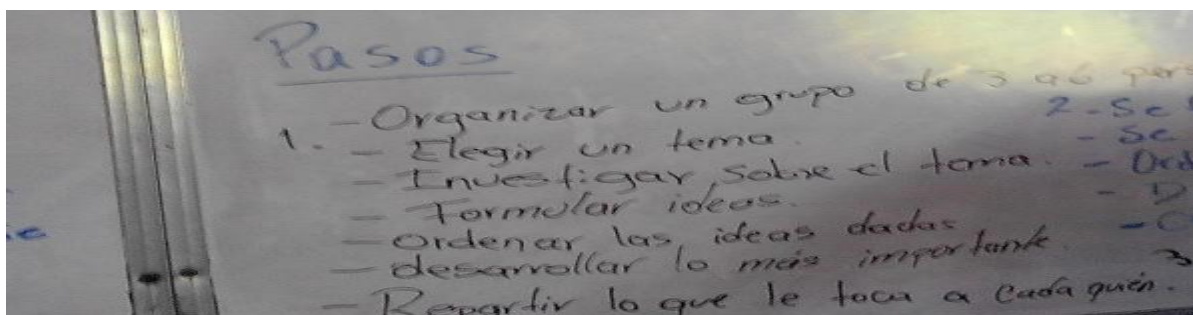 Pasos
1. - Organizar un grupo de 3 a 6
- Elegir un tema.
- Investigar sobre el tema.
- Formular ideas.
- Ordenar las ideas dadas
- desarrollar lo más importante.
- Repartir lo que le toca a cada quién.
2 - Se
- Se
3